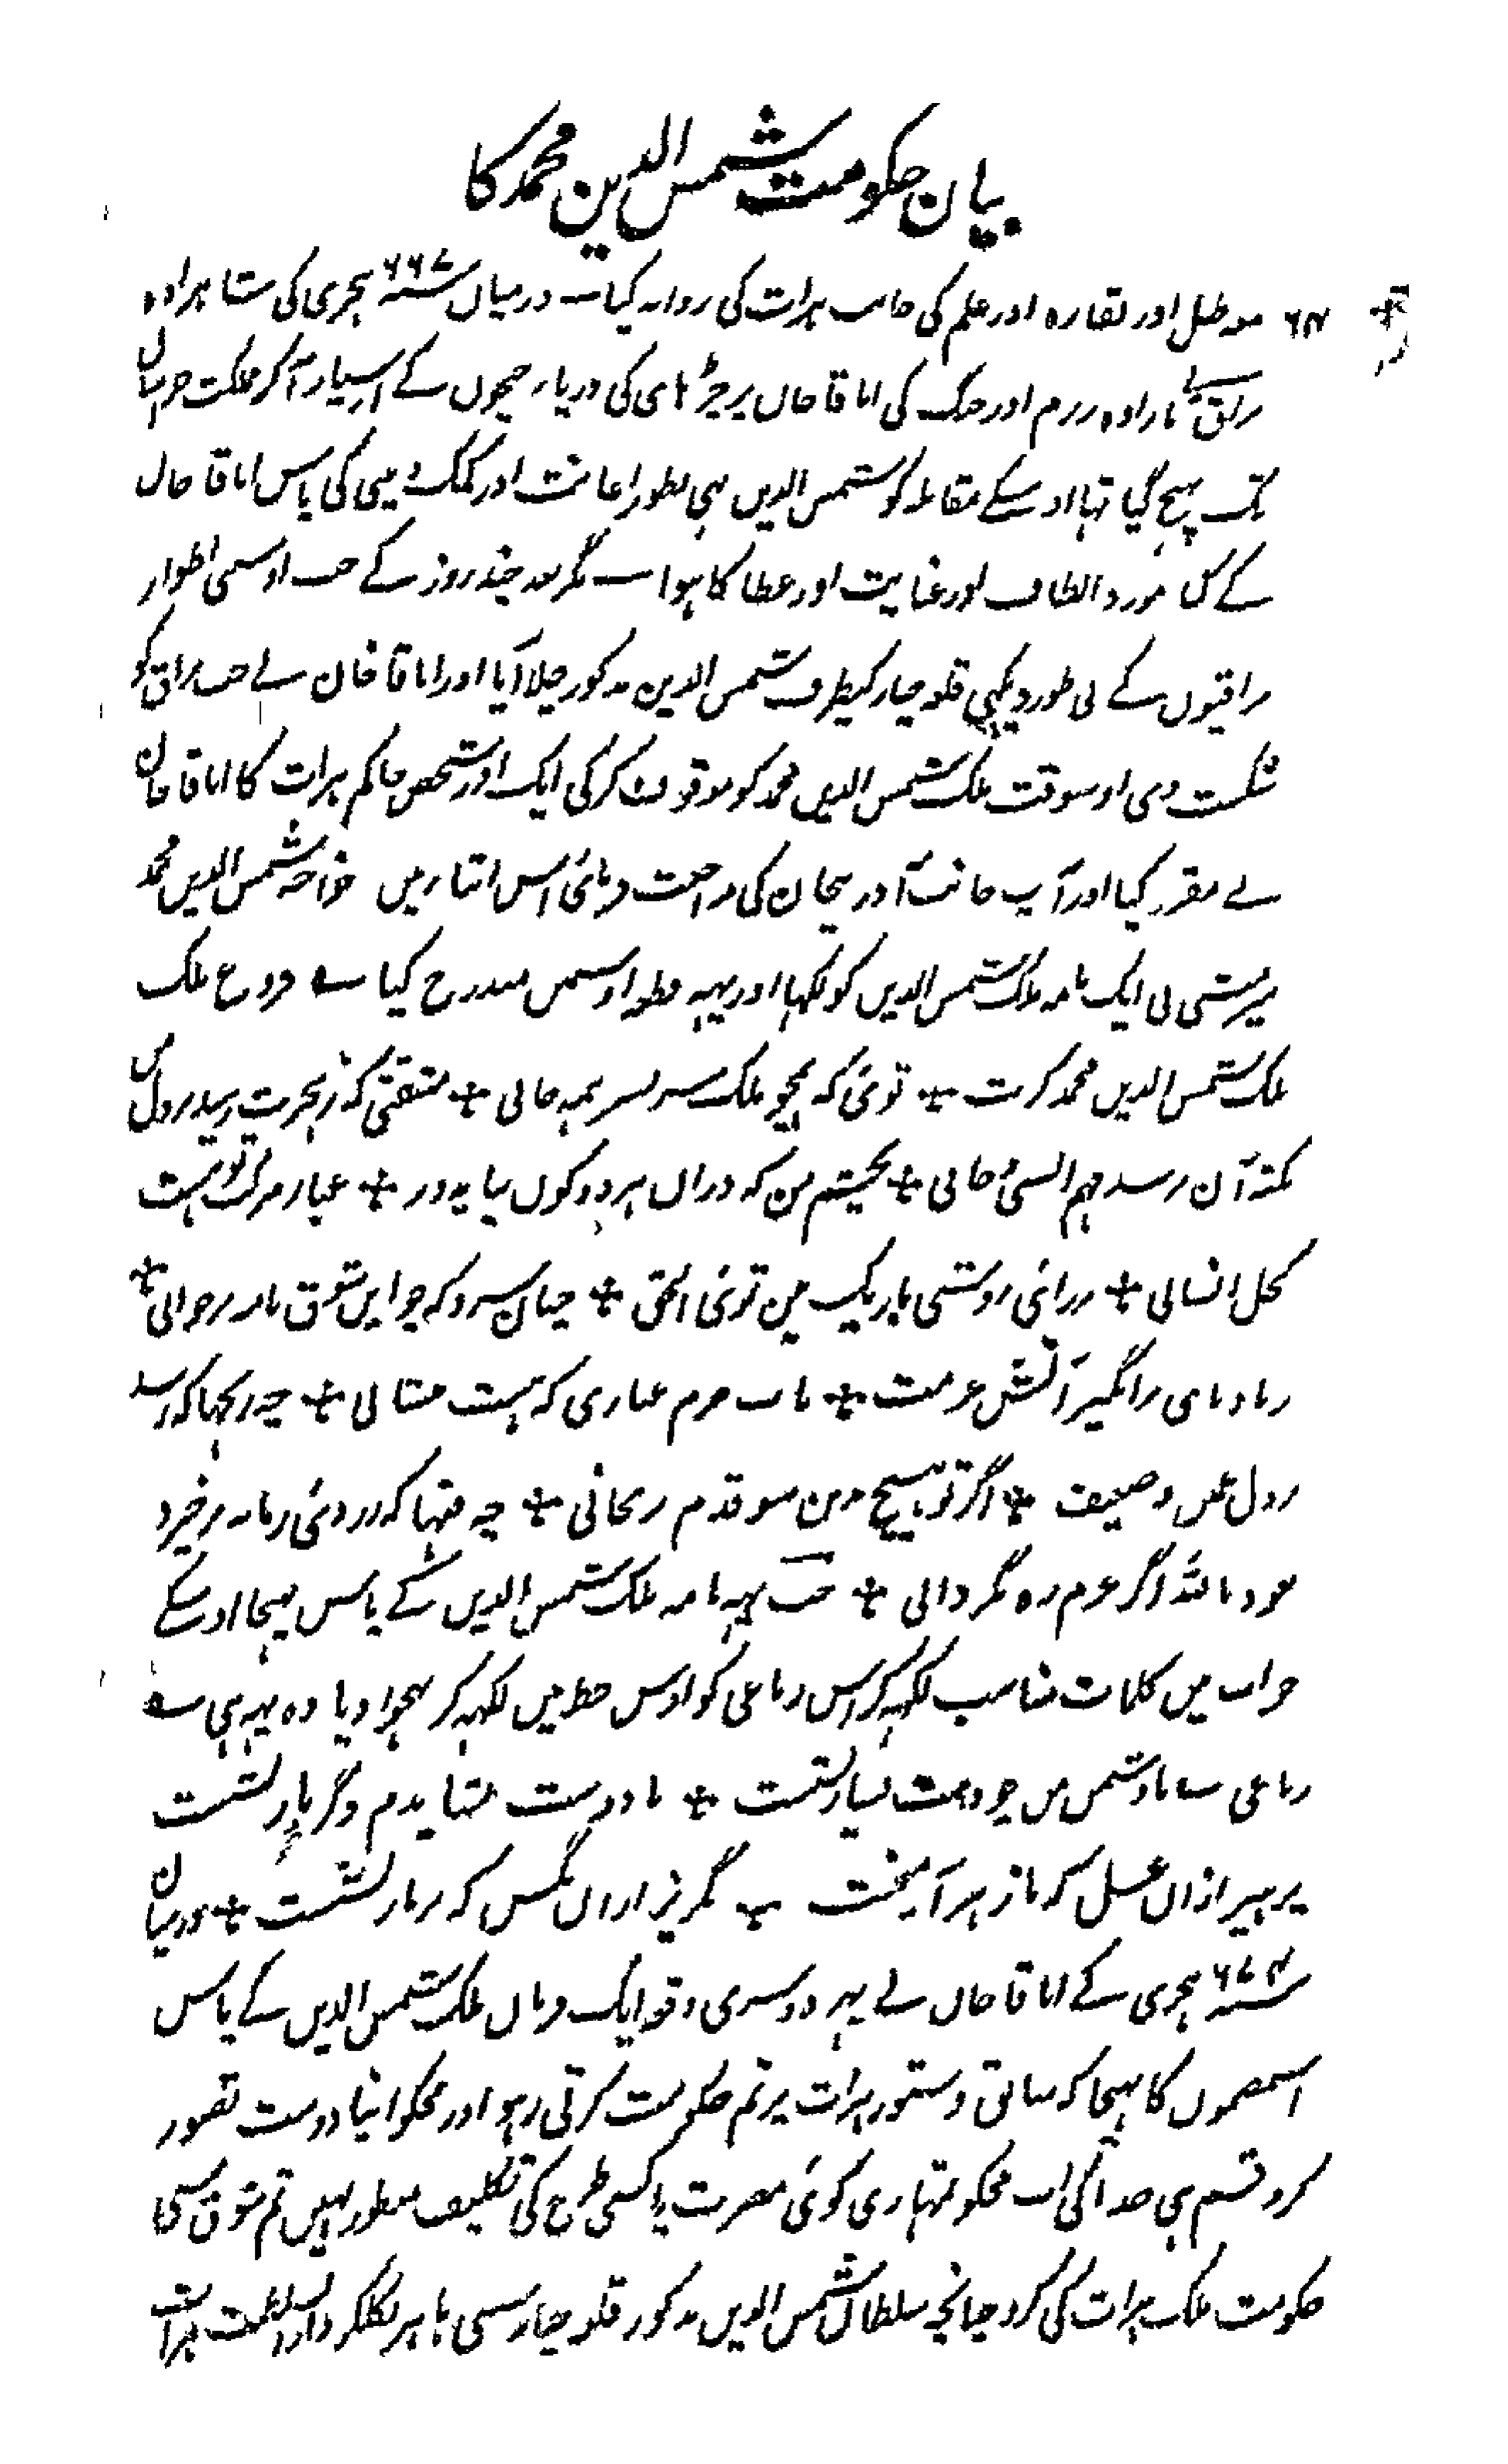 بیان حکومت شمس الدین محمد کا
مع طبل اور نقارہ اور علم کی جانب ہرات کی روانہ کیا درمیان سنہ ۶۶۷ ہجری کی شاہزادہ
براق نے بارادہ رزم اور جنگ کی اباقا خان پر چڑہائی کی دریاء جیحون کے اسپار آکر مملکت خراسان
تک پہنچ گیا تہا اوسکے مقابلہ کو شمس الدین بہی بطور اعانت اور کمک دہی کی پاس اباقا خان
کے مورد الطاف اور عنایت اور عطا کا ہوا مگر بعد چند روز کے جب اوسمی اطوار
براقیون کے بی طور دیکہی قلعہ خیسار کیطرف شمس الدین مذکور چلا آیا اور اباقا خان نے جب براق کو
شکست دی اوسوقت ملک شمس الدین محمد کو موقوف کرکی ایک اور شخص حاکم ہرات کا اباقا خان
نے مقرر کیا اور آپ جانب آذربیجان کی مراجعت فرمائی اس اثناء میں خواجہ شمس الدین محمد
نی ایک نامہ ملک شمس الدین کو لکہا اور یہہ قطعہ اوسمین مندرج کیا فروغ ملک
ملک شمس الدین محمد کرت توئی کہ ہمچو ملک سربسر ہمہ جانی مشقتی کہ زہجرت رسید بر دل من
کمنہ آن نرسد فہم انسی و جانی بچشم من کہ دران ہر دو کون نیاید در غبار مرکب تو ہست
کحل انسانی برای روشنی باریک بین توئی الحق چنان سرو کہ چو این شوق نامہ برخوانی
بباد پای برانگیز آتش عزمت بآب حزم غباری کہ ہست بنشانی چہ رنجہا کہ رسد
بر دل من ضعیف اگر تو رنجہ قدم رنجانی چہ فتنہا کہ در روی زمانہ برخیزد
نعوذ باللہ اگر عزم رہ بگردانی جب یہہ نامہ ملک شمس الدین کے پاس پہنچا اوسکے
جواب میں کلمات مناسب لکہہ کر اس رباعی کو اوس خط میں لکہہ کر بہجوا دیا وہ یہہ ہی
رباعی با دشمن من چو دوست بسیار نشست با دوست نشایدم دگر بار نشست
پرہیز ازان عسل کہ با زہر آمیخت بگریز ازان مگس کہ بر مار نشست درمیان
سنہ ۶۷۴ ہجری کے اباقا خان نے پہر دوسری دفعہ ایک فرمان ملک شمس الدین کے پاس
اس مضمون کا بہیجا کہ سابق دستور ہرات پر تم حکومت کرتی رہو اور مجکو اپنا دوست تصور
کرو قسم ہی خدا کی اب مجکو تمہاری کوئی مضرت یا کسی طرح کی تکلیف منظور نہیں تم شوق سی
حکومت ملک ہرات کی کرو چنانچہ سلطان شمس الدین مذکور قلعہ خیسار سی باہر نکلکر دارالسلطنت ہرات